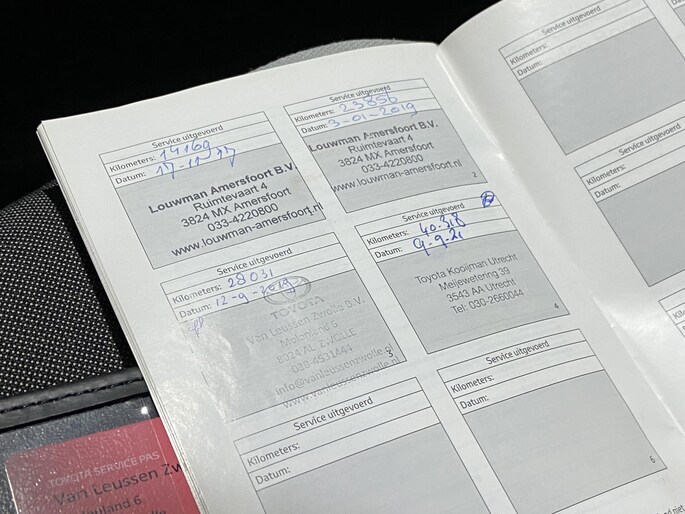 Service uitgevoerd
Kilometers: 14169
Datum: 17-11-17
Louwman Amersfoort B.V.
Ruimtevaart 4
3824 MX Amersfoort
033-4220800
www.louwman-amersfoort.nl
Service uitgevoerd
Kilometers: 23856
Datum: 3-01-2019
Louwman Amersfoort B.V.
Ruimtevaart 4
3824 MX Amersfoort
033-4220800
www.louwman-amersfoort.nl
2
Service uitgevoerd
Kilometers: 28031
Datum: 12-9-2019
TOYOTA
Van Leussen Zwolle B.V.
6
AL ZWOLLE
info@vanleussenzwolle.nl
www.vanleussenzwolle.nl
3
Service uitgevoerd
Kilometers: 40.318
Datum: 9.9.21
Toyota Kooijman Utrecht
Meijewetering 39
3543 AA Utrecht
Tel: 030-2660044
4
Service uitgevoerd
Kilometers:
Datum:
Service uitgevoerd
Kilometers:
Datum:
6
Service uitgevoerd
Kilometers:
Datum:
Service uitgevoerd
Kilometers:
Datum:
Service
Kilometers:
Datum:
TOYOTA SERVICE PAS
Van Leussen Zw